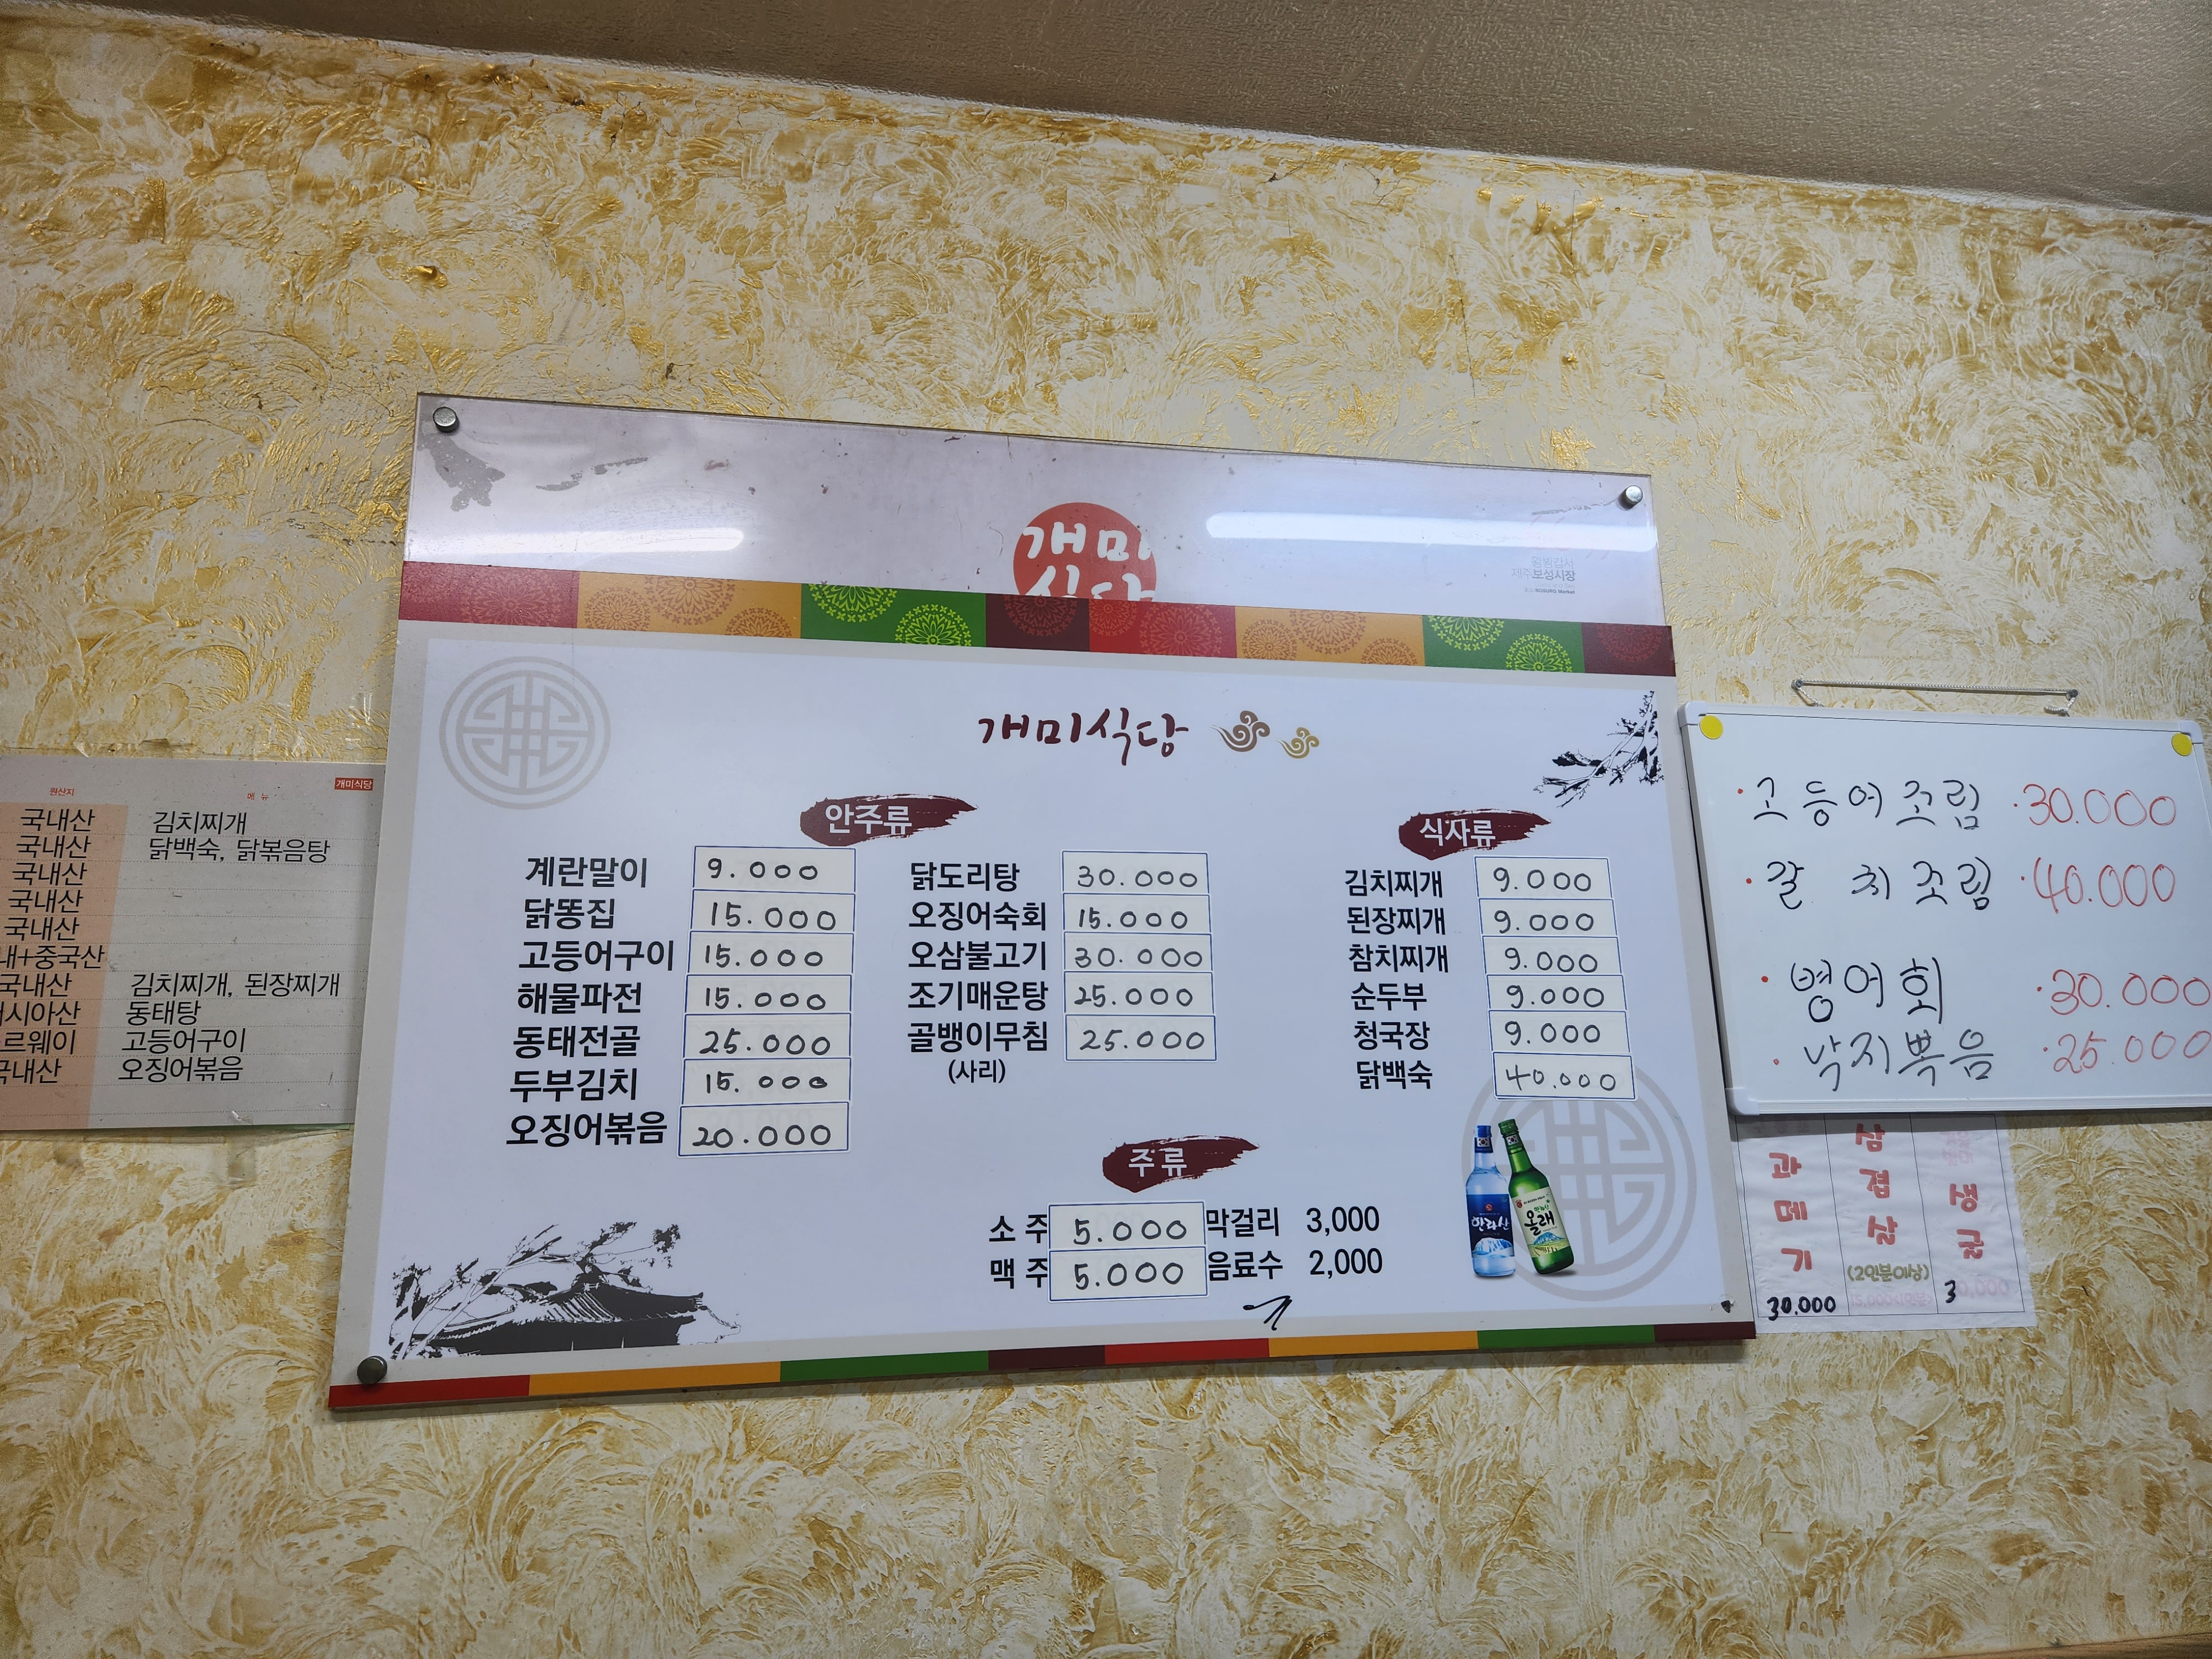 개미
식당
왕벚감저
제주보성시장
BOSUNG Market
개미식당
안주류
계란말이 9.000
닭똥집 15.000
고등어구이 15.000
해물파전 15.000
동태전골 25.000
두부김치 15.000
오징어볶음 20.000
닭도리탕 30.000
오징어숙회 15.000
오삼불고기 30.000
조기매운탕 25.000
골뱅이무침 25.000
(사리)
식사류
김치찌개 9.000
된장찌개 9.000
참치찌개 9.000
순두부 9.000
청국장 9.000
닭백숙 40.000
주류
소주 5.000 막걸리 3,000
맥주 5.000 음료수 2,000
한라산
올래
원산지 메뉴 개미식당
국내산 김치찌개
국내산 닭백숙, 닭볶음탕
국내산
국내산
국내산
내+중국산
국내산 김치찌개, 된장찌개
시아산 동태탕
르웨이 고등어구이
국내산 오징어볶음
·고등어조림 ·30.000
·갈치조림 ·40.000
·병어회 ·30.000
·낙지뽁음 ·25.000
과메기
30.000
삼겹살
(2인분이상)